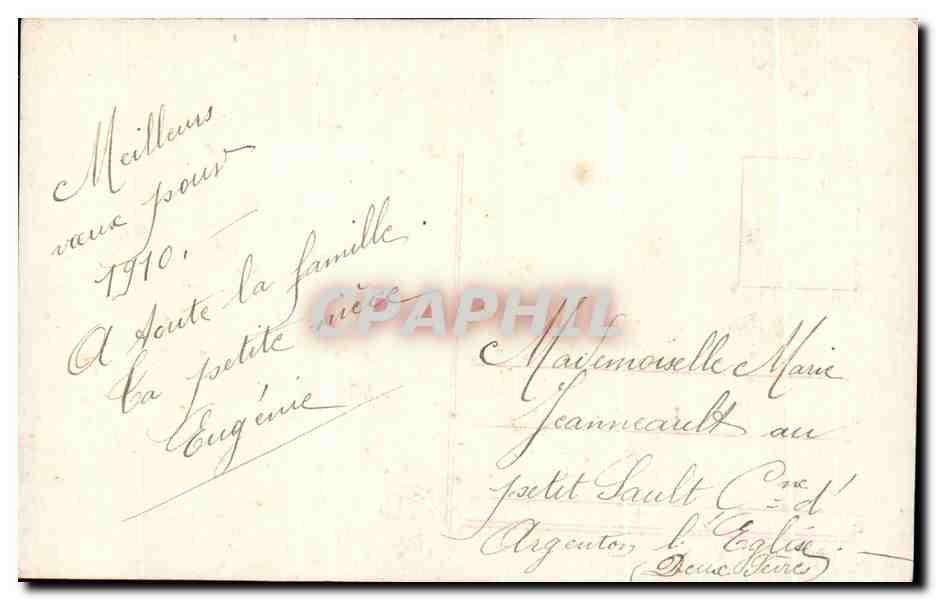 Meilleurs
vœux pour
1910. —
A toute la famille.
Ta petite nièce
Eugénie
CPAPHIL
Mademoiselle Marie
Jeanneault au
petit Sault Cne d'
Argenton l'Eglise. —
(Deux Sèvres)